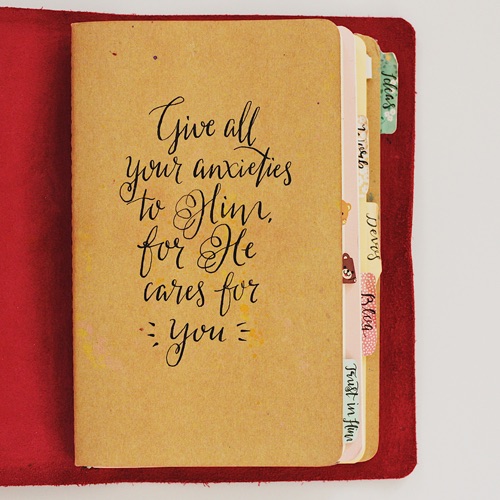 Give all
your anxieties
to Him,
for He
cares for
you
Ideas
Devos
Blog
Trust in Him